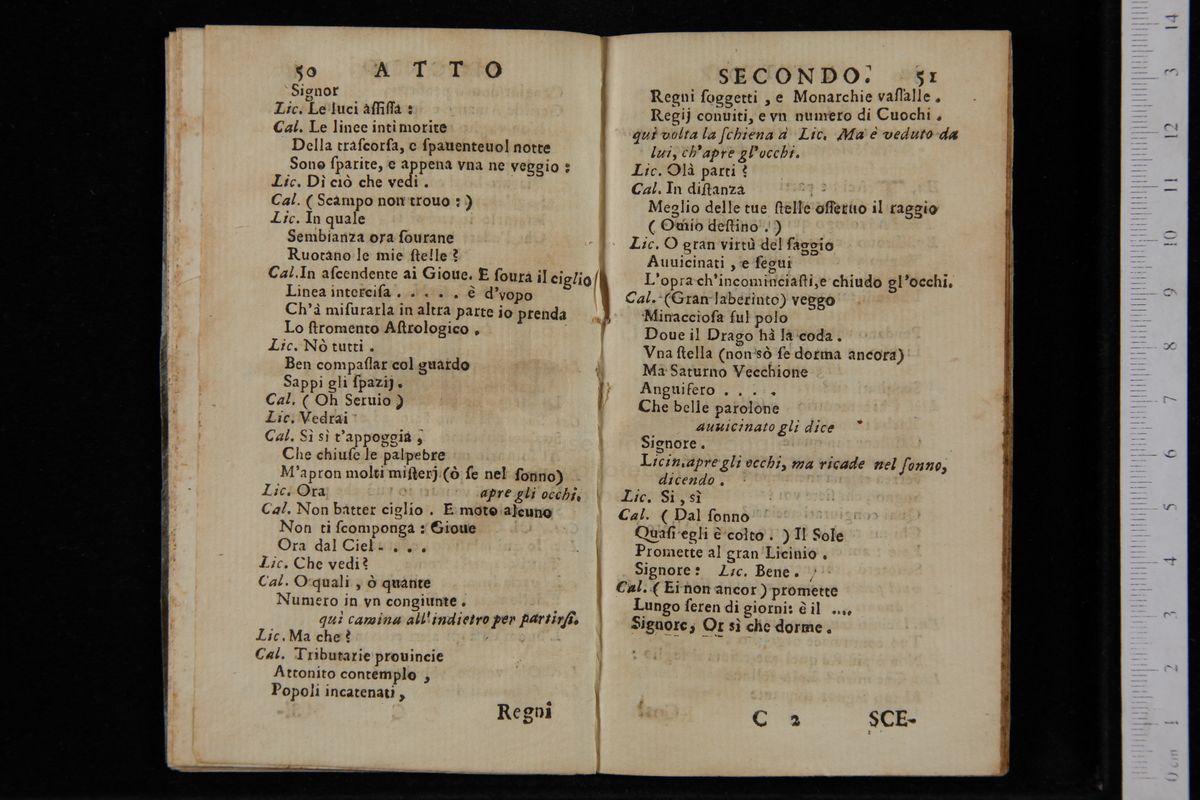 50 ATTO
Signor
Lic. Le luci àſſiſſa :
Cal. Le linee intimorite
Della traſcorſa, e ſpauenteuol notte
Sono ſparite, e appena vna ne veggio :
Lic. Dì ciò che vedi .
Cal. ( Scampo non trouo : )
Lic. In quale
Sembianza ora ſourane
Ruotano le mie ſtelle ?
Cal. In aſcendente ai Gioue. E ſoura il ciglio
Linea interciſa . . . . . è d'vopo
Ch'à miſurarla in altra parte io prenda
Lo ſtromento Aſtrologico .
Lic. Nò tutti .
Ben compaſſar col guardo
Sappi gli ſpazij .
Cal. ( Oh Seruio )
Lic. Vedrai
Cal. Sì sì t'appoggia ,
Che chiuſe le palpebre
M'apron molti miſterj (ò ſe nel ſonno)
Lic. Ora apre gli occhi.
Cal. Non batter ciglio . E moto alcuno
Non ti ſcomponga : Gioue
Ora dal Ciel . . . .
Lic. Che vedi ?
Cal. O quali , ò quante
Numero in vn congiunte .
quì camina all'indietro per partirſi.
Lic. Ma che ?
Cal. Tributarie prouincie
Attonito contemplo ,
Popoli incatenati ,
Regni
SECONDO. 51
Regni ſoggetti , e Monarchie vaſſalle .
Regij conuiti, e vn numero di Cuochi .
quì volta la ſchiena à Lic. Ma è veduto da
lui, ch'apre gl'occhi.
Lic. Olà parti ?
Cal. In diſtanza
Meglio delle tue ſtelle oſſeruo il raggio
( O mio deſtino . )
Lic. O gran virtù del ſaggio
Auuicinati , e ſegui
L'opra ch'incominciaſti, e chiudo gl'occhi.
Cal. (Gran laberinto) veggo
Minaccioſa ſul polo
Doue il Drago hà la coda .
Vna ſtella (non sò ſe dorma ancora)
Ma Saturno Vecchione
Anguifero . . . .
Che belle parolone
auuicinato gli dice
Signore .
Licin. apre gli occhi, ma ricade nel ſonno,
dicendo .
Lic. Si , sì
Cal. ( Dal ſonno
Quaſi egli è colto . ) Il Sole
Promette al gran Licinio .
Signore : Lic. Bene .
Cal. ( Ei non ancor ) promette
Lungo ſeren di giorni: è il ....
Signore, Or sì che dorme .
C 2 SCE-
0 cm 1 2 3 4 5 6 7 8 9 10 11 12 13 14